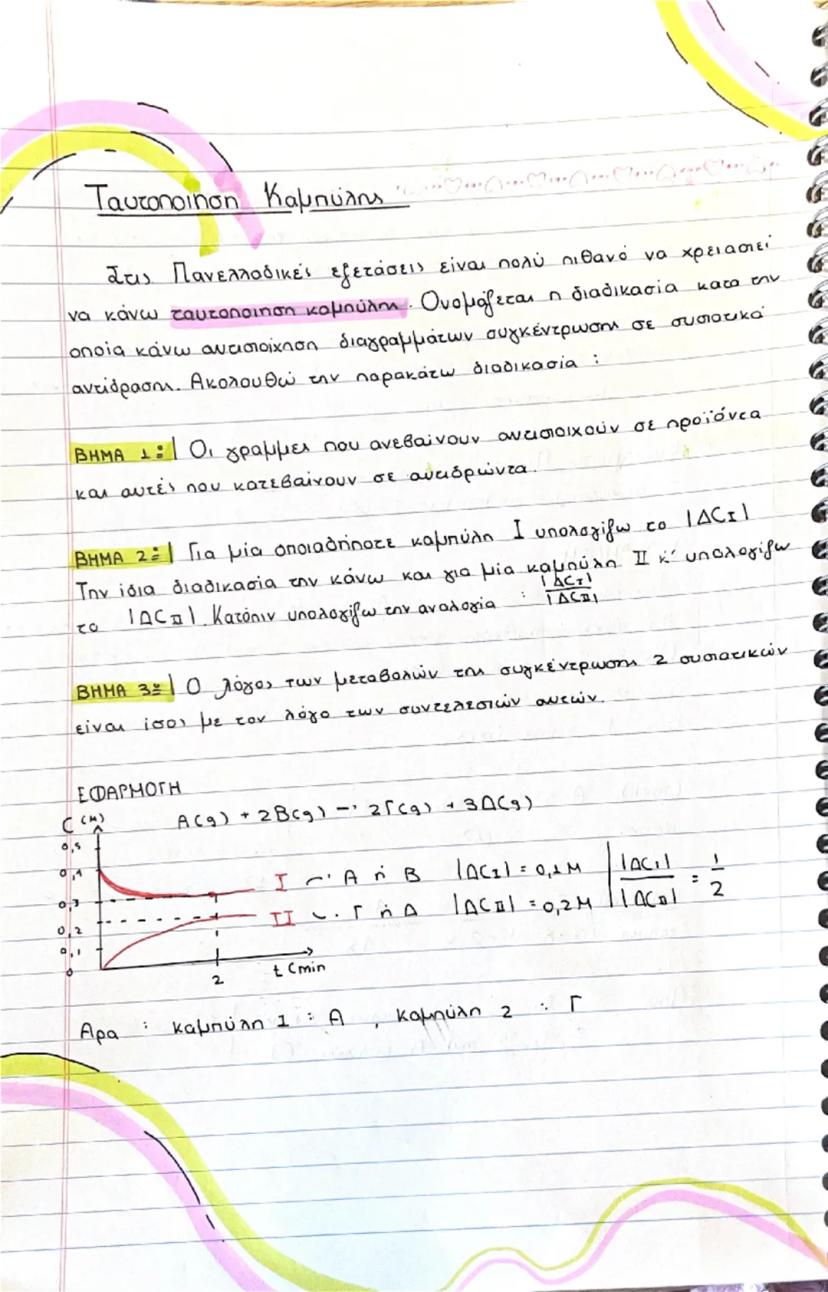 Ταυτοποίηση Καμπύλης
Στις Πανελλαδικές εξετάσεις είναι πολύ πιθανό να χρειαστεί
να κάνω ταυτοποίηση καμπύλης. Ονομάζεται η διαδικασία κατα την
οποία κάνω αντιστοίχηση διαγραμμάτων συγκέντρωσης σε συστατικά
αντίδρασης. Ακολουθώ την παρακάτω διαδικασία :
ΒΗΜΑ 1: | Οι γραμμες που ανεβαίνουν αντιστοιχούν σε προϊόντα
και αυτές που κατεβαίνουν σε αντιδρώντα.
ΒΗΜΑ 2: | Για μία οποιαδήποτε καμπύλη I υπολογίζω το |ΔC_I|
Την ίδια διαδικασία την κάνω και για μία καμπύλη II κ' υπολογίζω
το |ΔC_II|. Κατόπιν υπολογίζω την αναλογία : |ΔC_I| / |ΔC_II|
ΒΗΜΑ 3: | Ο λόγος των μεταβολών της συγκέντρωσης 2 συστατικών
είναι ίσος με τον λόγο των συντελεστών αυτών.
ΕΦΑΡΜΟΓΗ
A(g) + 2B(g) → 2Γ(g) + 3Δ(g)
C (M)
0,5
0,4
0,3
0,2
0,1
0
I → A ή B |ΔC_I| = 0,1M
II → Γ ή Δ |ΔC_II| = 0,2M
|ΔC_I| / |ΔC_II| = 1/2
2
t (min
Αρα : καμπύλη 1 : A , καμπύλη 2 : Γ